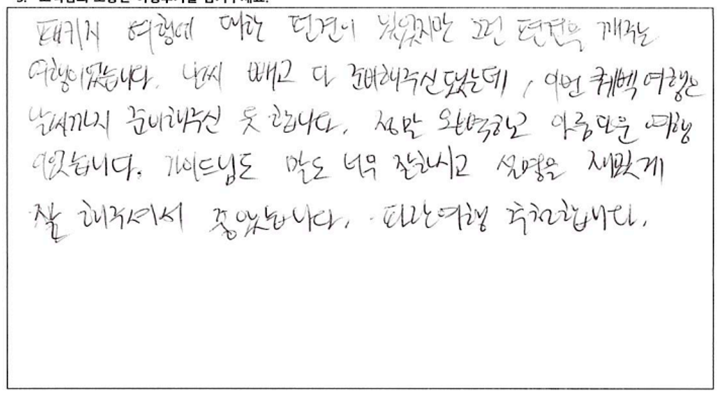 패키지 여행에 대한 편견이 있었지만 그런 편견을 깨주는
여행이었습니다. 날씨 빼고 다 준비해주신댔는데, 이번 퀘벡 여행은
날씨까지 준비해주신 듯 합니다. 정말 완벽하고 아름다운 여행
이었습니다. 가이드님도 말도 너무 잘하시고 설명을 재밌게
잘 해주셔서 좋았습니다. 파란여행 추천합니다.